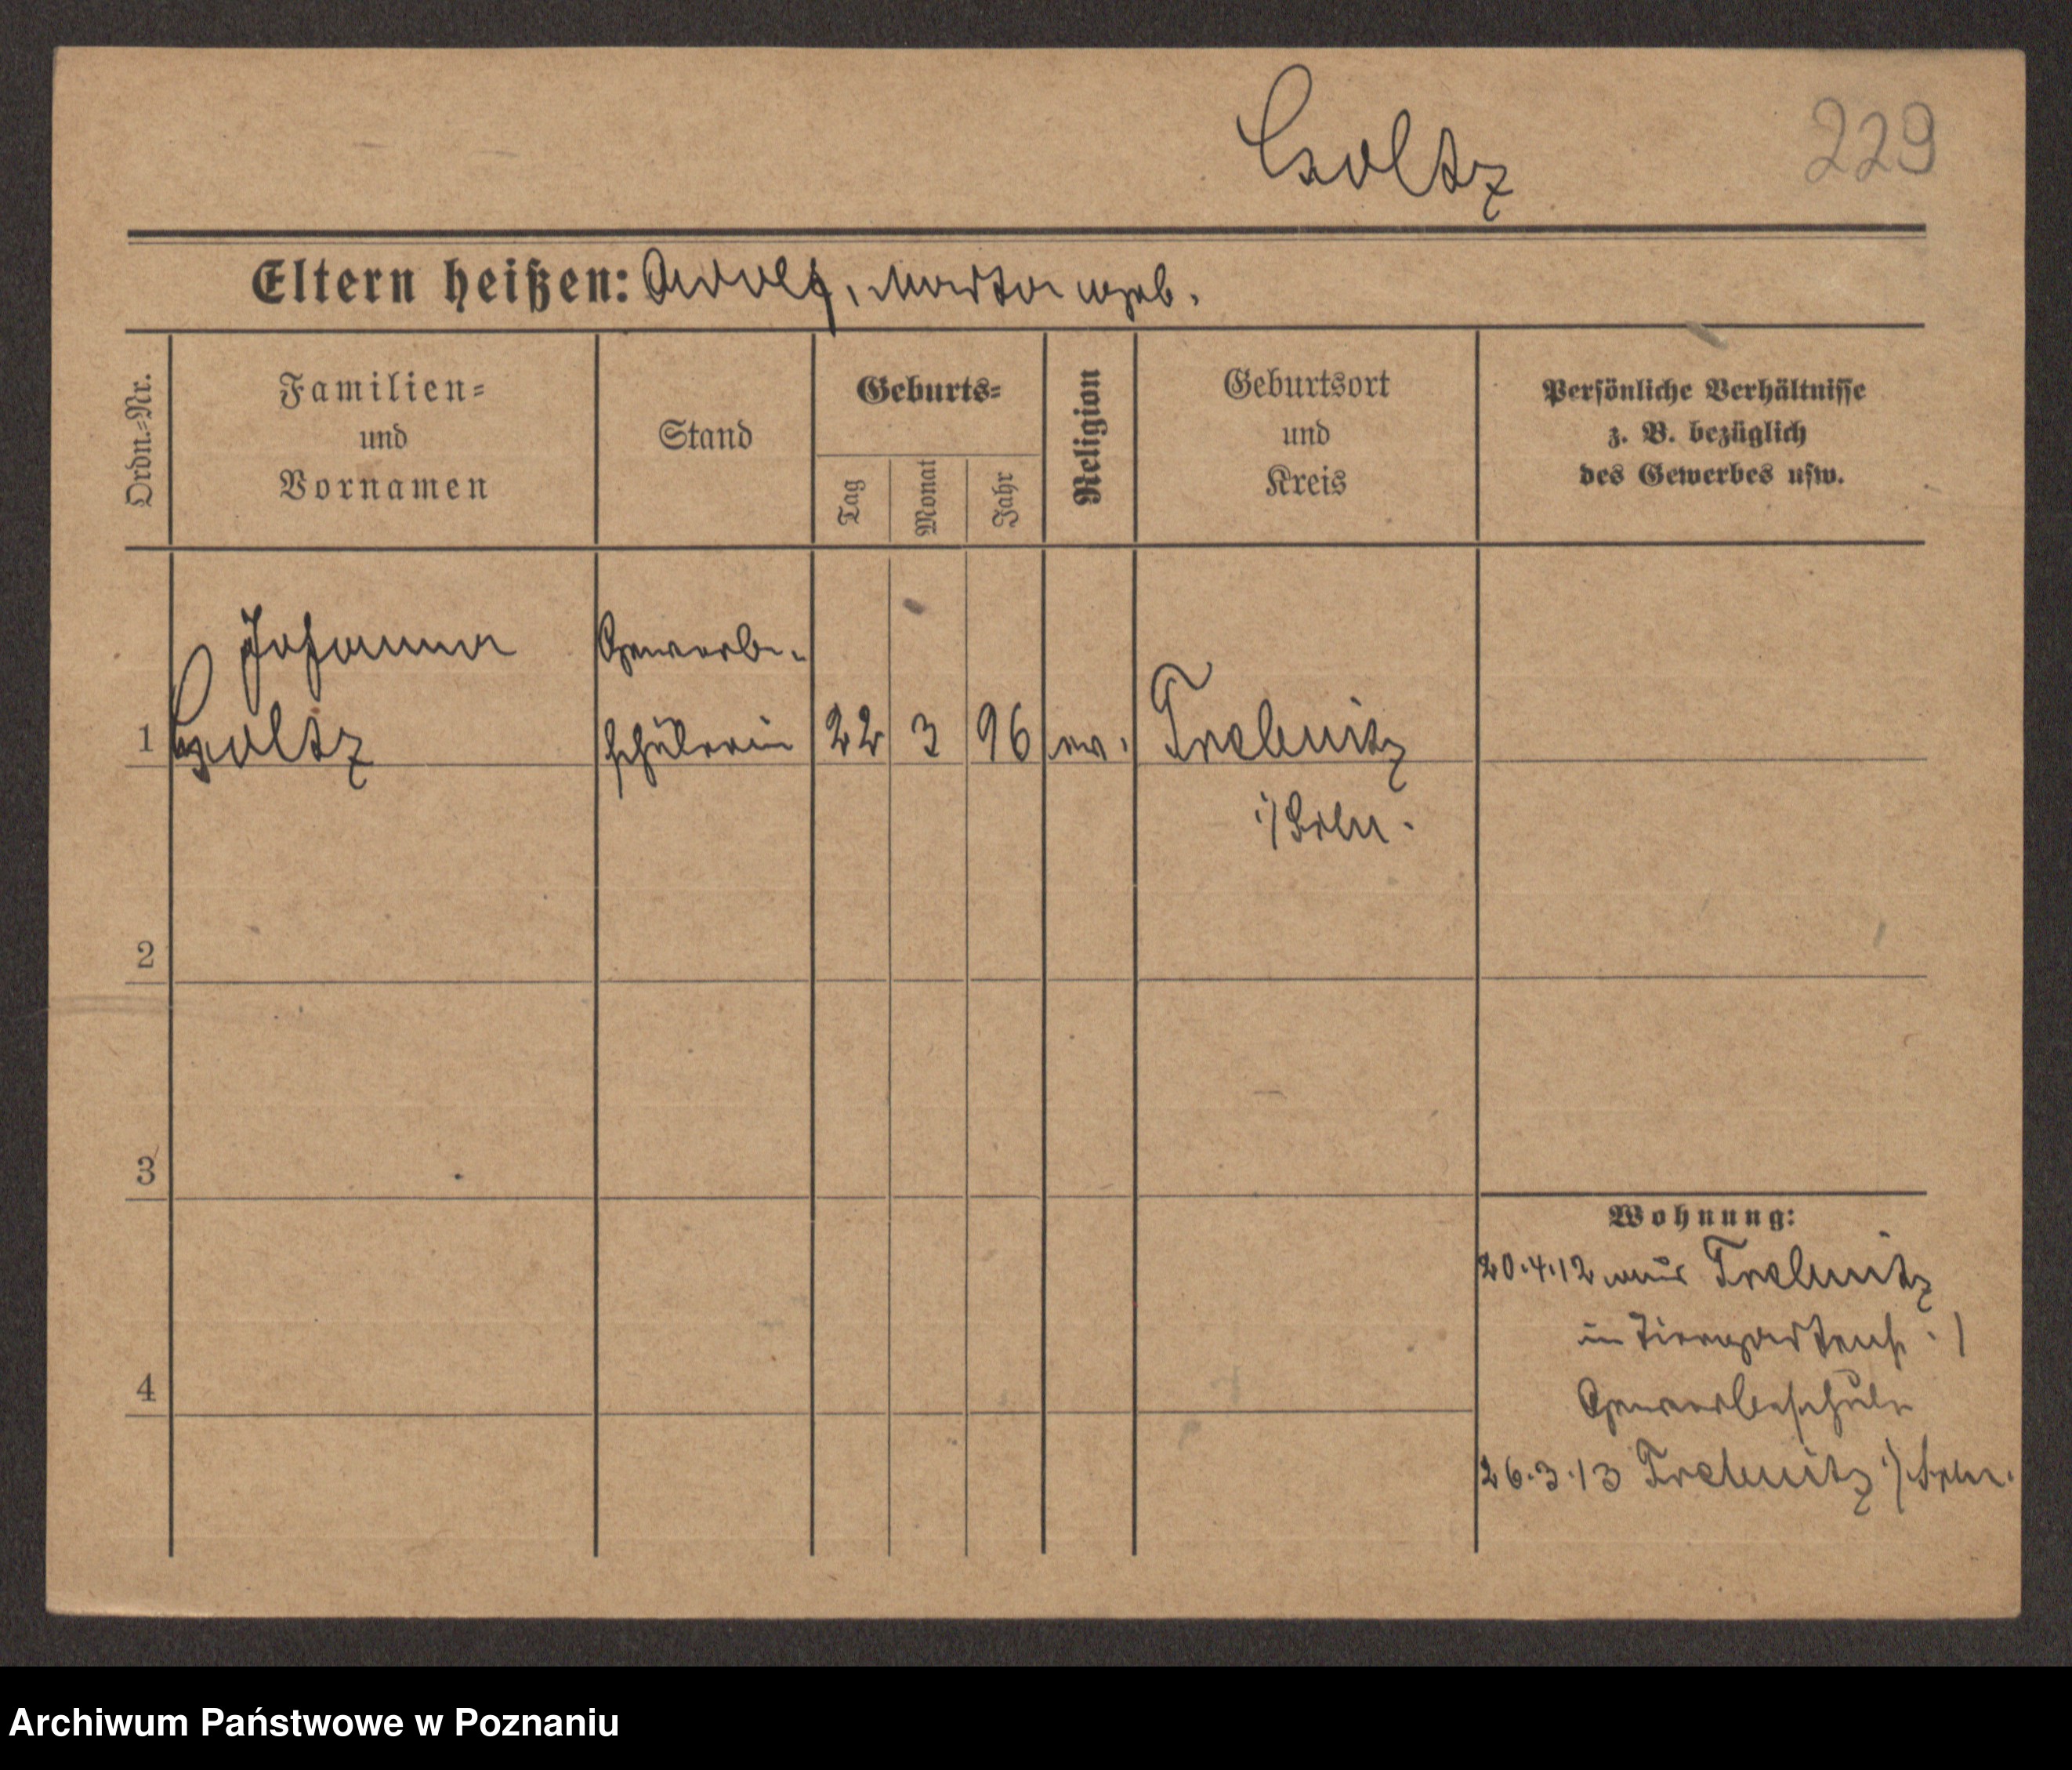 Goltz
229
Eltern heißen: Adolf, Marta geb.
Ordn.-Nr.
Familien-
und
Vornamen
Stand
Geburts-
Tag
Monat
Jahr
Religion
Geburtsort
und
Kreis
Persönliche Verhältnisse
z. B. bezüglich
des Gewerbes usw.
Johanna
Goltz
Gewerbe-
schülerin
1
22
3
96
ev.
Trebnitz
2
3
4
Wohnung:
20.4.12 aus Trebnitz
in Tiergartenstr. 1
Gewerbeschule
26.3.13 Trebnitz
Archiwum Państwowe w Poznaniu